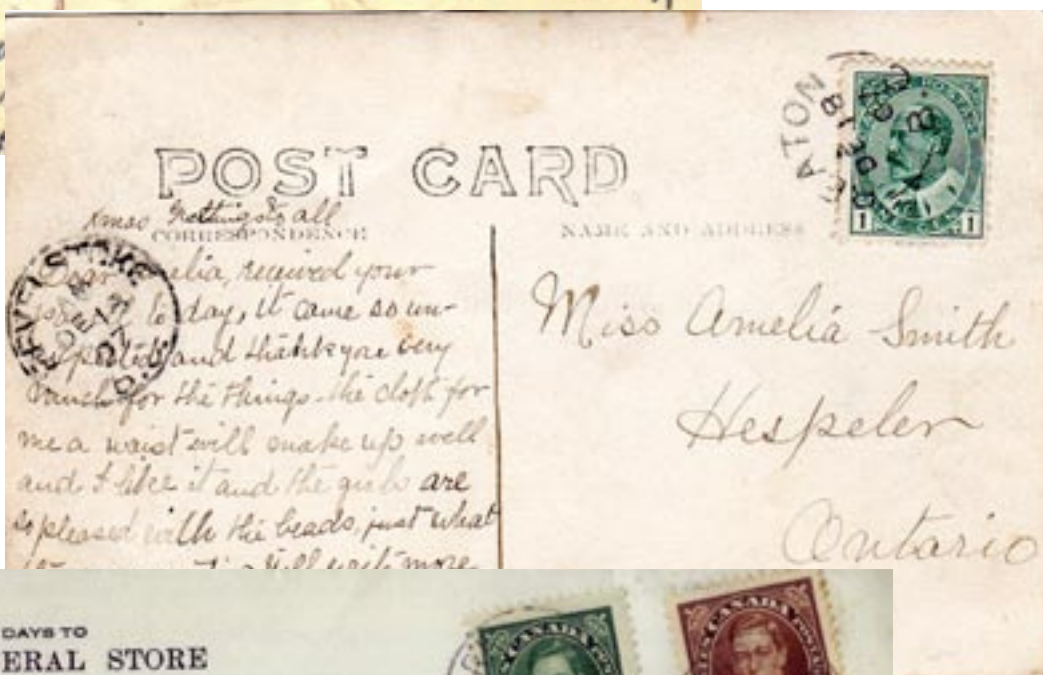 POST CARD
Xmas Greetings to all
CORRESPONDENCE
NAME AND ADDRESS
Dear Amelia, received your
to day, it came so un-
expected and thank you very
much for the things the cloth for
me a waist will make up well
and I like it and the girls are
so pleased with the beads, just what
will write more
REVELSTOKE
B.C.
EATON
DE 18
Miss Amelia Smith
Hespeler
Ontario
1 1
DAYS TO
ERAL STORE
CANADA
CANADA